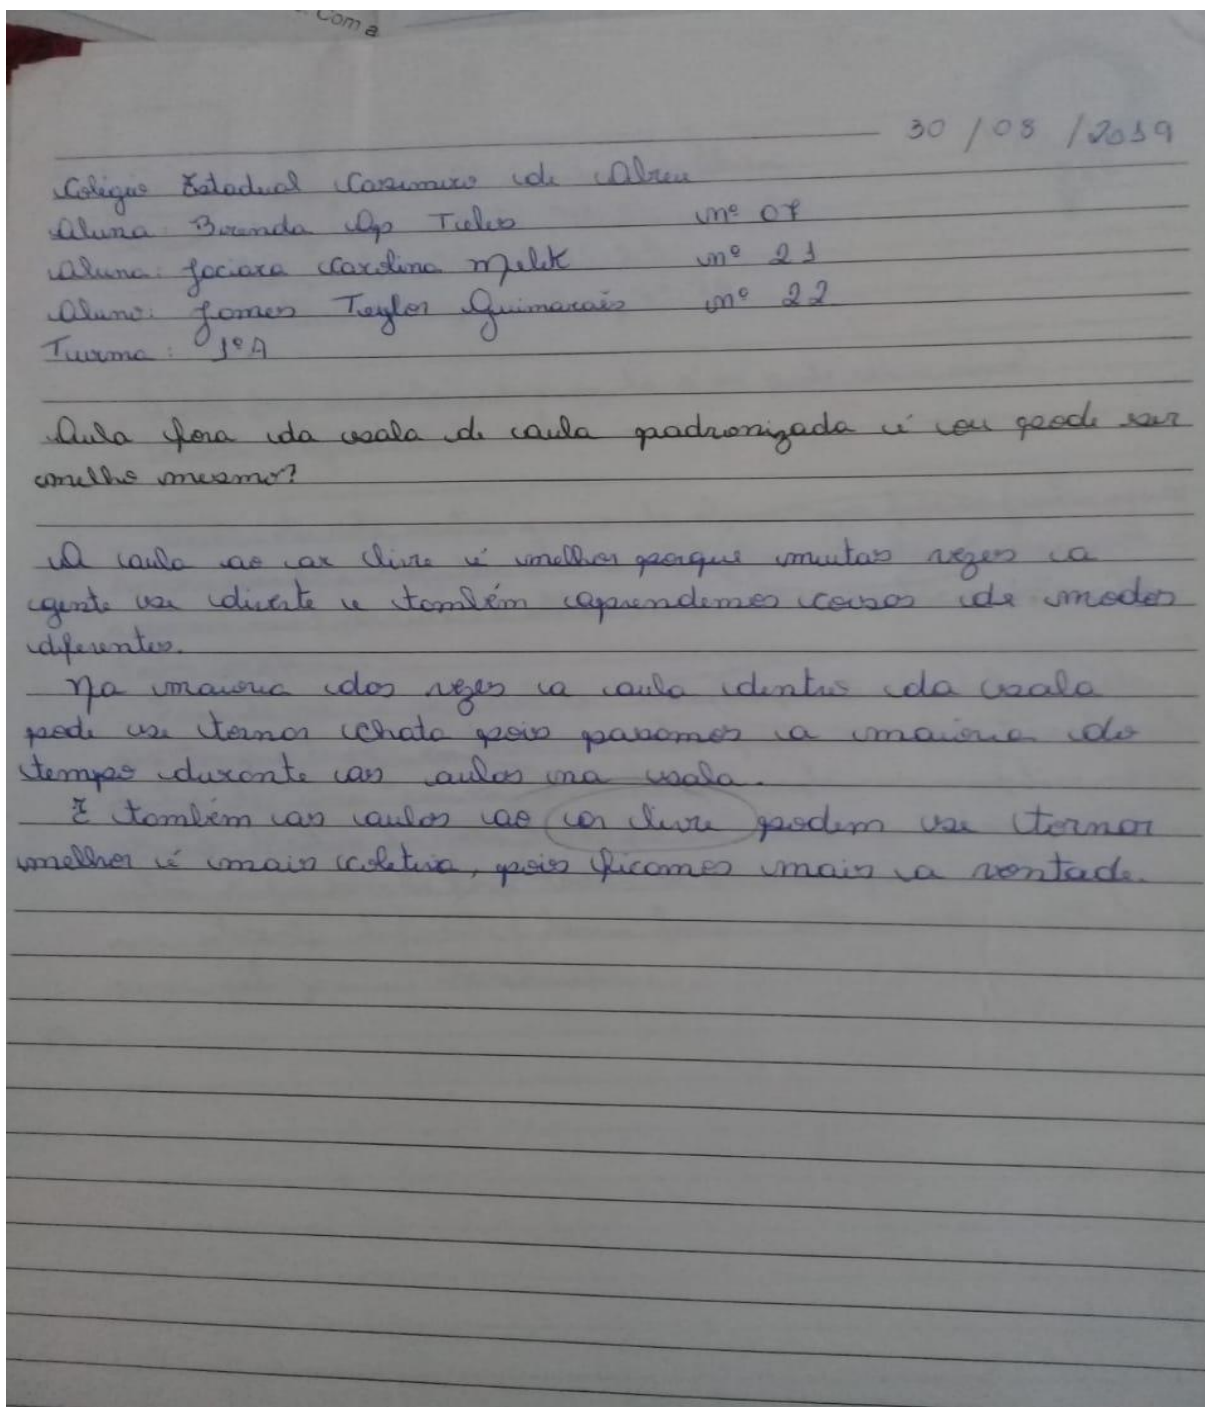 Com a
30 / 08 / 2019
Colégio Estadual Casimiro de Abreu
Aluna: Brenda Ap Teles nº 07
Aluna: Jociara Carolina Melek nº 21
Aluno: James Teylor Guimarais nº 22
Turma: 1º A
Aula fora da sala de aula padronizada é ou pode ser
melho mesmo?
A aula ao ar livre é melhor porque muitas vezes a
gente se diverte e também aprendemos coisas de modos
diferentes.
Na maioria das vezes a aula dentro da sala
pode se tornar chata pois passamos a maioria do
tempo durante as aulas na sala.
E também as aulas ao ar livre podem se tornar
melhor é mais coletiva, pois ficamos mais a vontade.